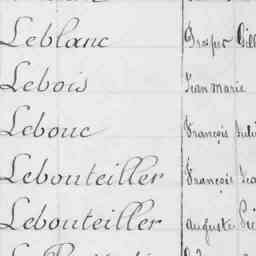 Leblanc Prosper
Lebois Jean Marie
Lebouc François
Lebouteiller François
Lebouteiller Auguste